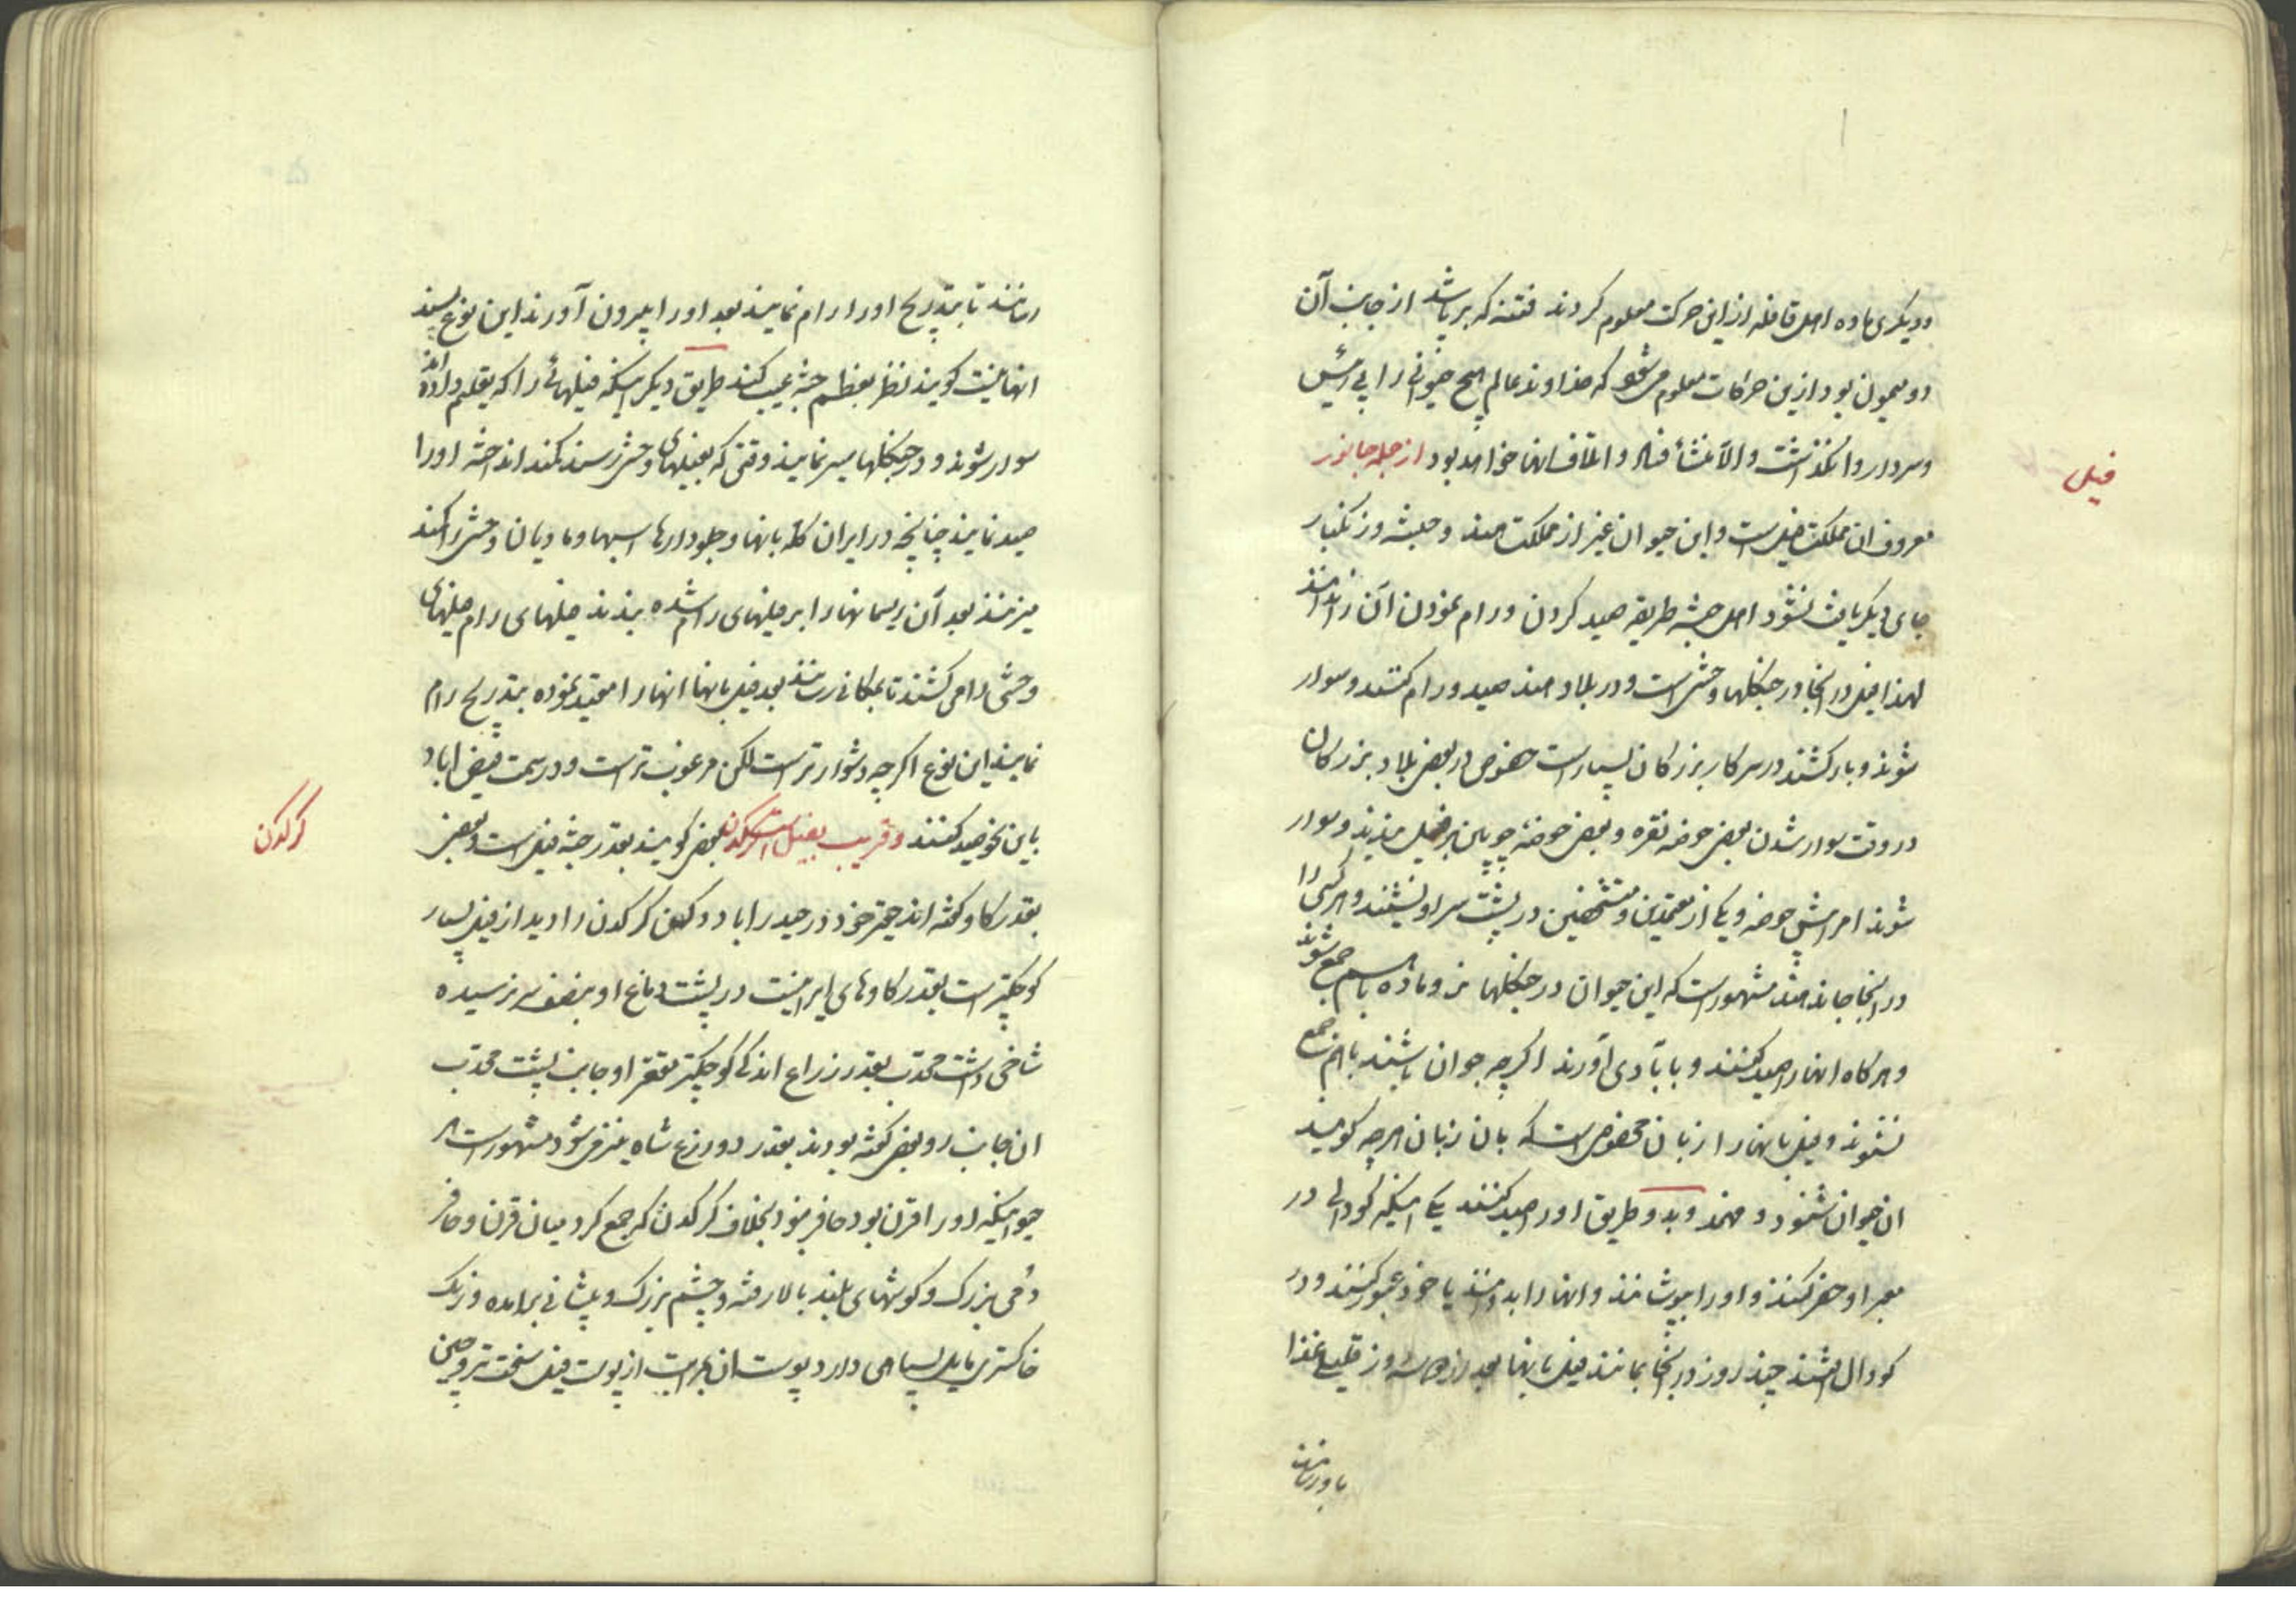 ودیکری ماده اهل قافله ازین حرکت معلوم کردند فتنه که برپا شد از جانب آن
دو میمون بود ازین حرکات معلوم میشود که خداوند عالم هیچ حیوانی را بی رئیس
وسردار وانکذاشت والا منشأ فساد واتلاف انها خواهد بود از جمله جانور
فیل
معروف ان مملکت فیل است واین حیوان غیر از مملکت هند وحبشه وزنکبار
جای دیکر یافت نشود اهل حبشه طریقه صید کردن ورام نمودن آن را ندانند
لهذا فیل در انجا در جنکلها وحشی است ودر بلاد هند صید ورام کنند وسوار
شوند وبار کشند در سرکار بزرکان بسیار است خصوص در بعض بلاد بزرکان
در وقت سوار شدن بعض حوضه نقره وبعض حوضه چوبین بر فیل بندند وسوار
شوند امرا پیش حوضه ویکی از معتمدین ومتشخصین در پشت سر او نشینند وهر کسی را
در انجا جا ندهند مشهور است که این حیوان در جنکلها نر وماده باهم جمع شوند
وهرکاه انها را صید کنند وبابادی آورند اکرچه جوان باشند باهم جمع
نشوند وفیل بانها را زبان مخصوص است که بان زبان هرچه کویند
ان حیوان شنود وفهمد وبدو طریق او را صید کنند یکی اینکه کودالی در
معبر او حفر کنند واو را بپوشانند وانها را بدوانند یا خود عبور کنند ودر
کودال افتند چند روز در انجا بمانند فیل بانها بعد از دو سه روز قلیلی غذا
باو رسانند
رسانند تا بتدریج او را رام نمایند بعد او را بیرون آورند این نوع پسند
انها نیست کویند نظر بعظم جثه عیب کند طریق دیکر اینکه فیلهائی را که تعلیم داده اند
سوار شوند ودر جنکلها سیر نمایند وقتی که بفیلهای وحشی رسند کمند انداخته او را
صید نمایند چنانچه در ایران کله بانها وجلودارها اسبها ومادیان وحشی را کمند
میزنند بعد آن ریسمانها را بر فیلهای رام شده بندند فیلهای رام فیلهای
وحشی را می کشند تا بمکانی رسانند بعد فیل بانها انها را مقید نموده بتدریج رام
نمایند این نوع اکرچه دشوارتر است لکن مرغوب تر است ودر سمت فیض اباد
باین نحو صید کنند وقریب بفیل است کرکدن بعض کویند بقدر جثه فیل است وبعض
کرکدن
بقدر کاو کفته اند حقیر خود در حیدراباد دکهن کرکدن را دید از فیل بسیار
کوچکتر است بقدر کاوهای ایرانیست در پشت دماغ او بنصف سر نرسیده
شاخی داشت محدب بقدر ذراع اندکی کوچکتر مقعر او جانب پشت محدب
ان جانب رو بعض کفته بودند بقدر دو ذرع شاه نیز می شود مشهور است هر
حیوانیکه او را قرن بود حافر نبود بخلاف کرکدن که جمع کرد میان قرن وحافر
دمی بزرک وکوشهای بلند بالا رفته وچشم بزرک وپیشانی برامده ورنک
خاکستری مایل بسیاهی دارد پوست ان بمراتب از پوست فیل سخت تر وچین